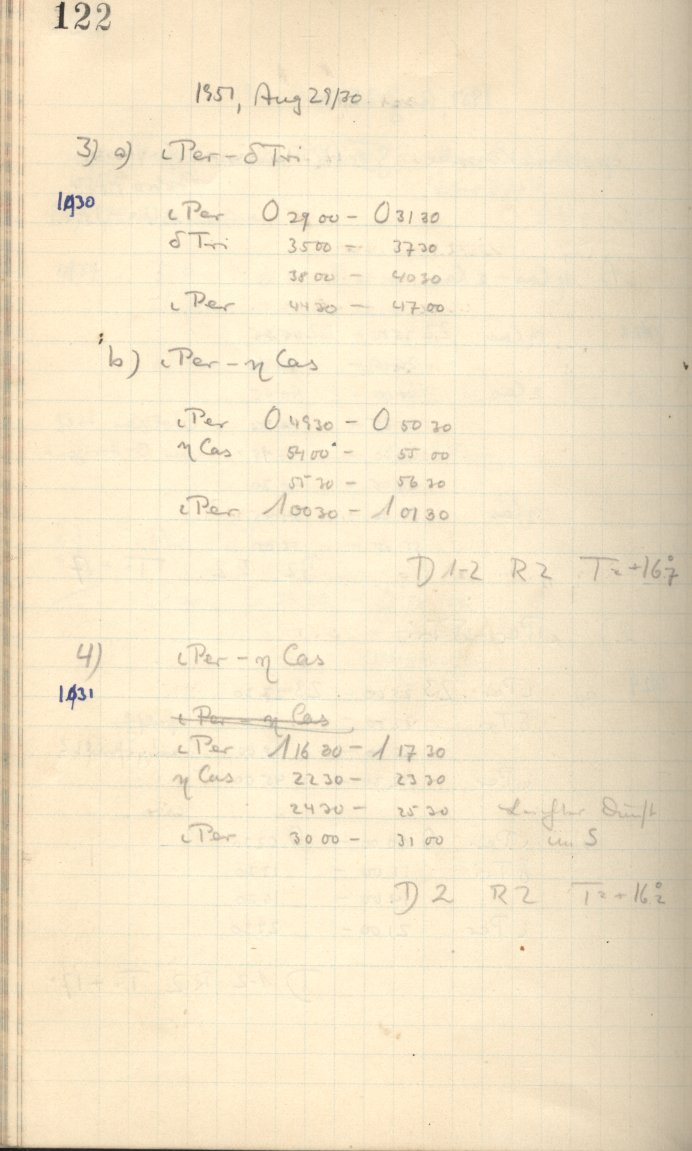 122
1951, Aug 29/30
3) a) ιPer – δTri
1030
ιPer 0 29 00 – 0 31 30
δTri 35 00 – 37 30
38 00 – 40 30
ιPer 44 30 – 47 00
b) ιPer – η Cas
ιPer 0 49 30 – 0 50 30
η Cas 54 00 – 55 00
55 30 – 56 30
ιPer 1 00 30 – 1 01 30
D 1-2 R 2 T = +16°7
4) ιPer – η Cas
1031
ιPer – η Cas
ιPer 1 16 30 – 1 17 30
η Cas 22 30 – 23 30
24 30 – 25 30 leichter Dunst
ιPer 30 00 – 31 00 im S
D 2 R 2 T = +16°2